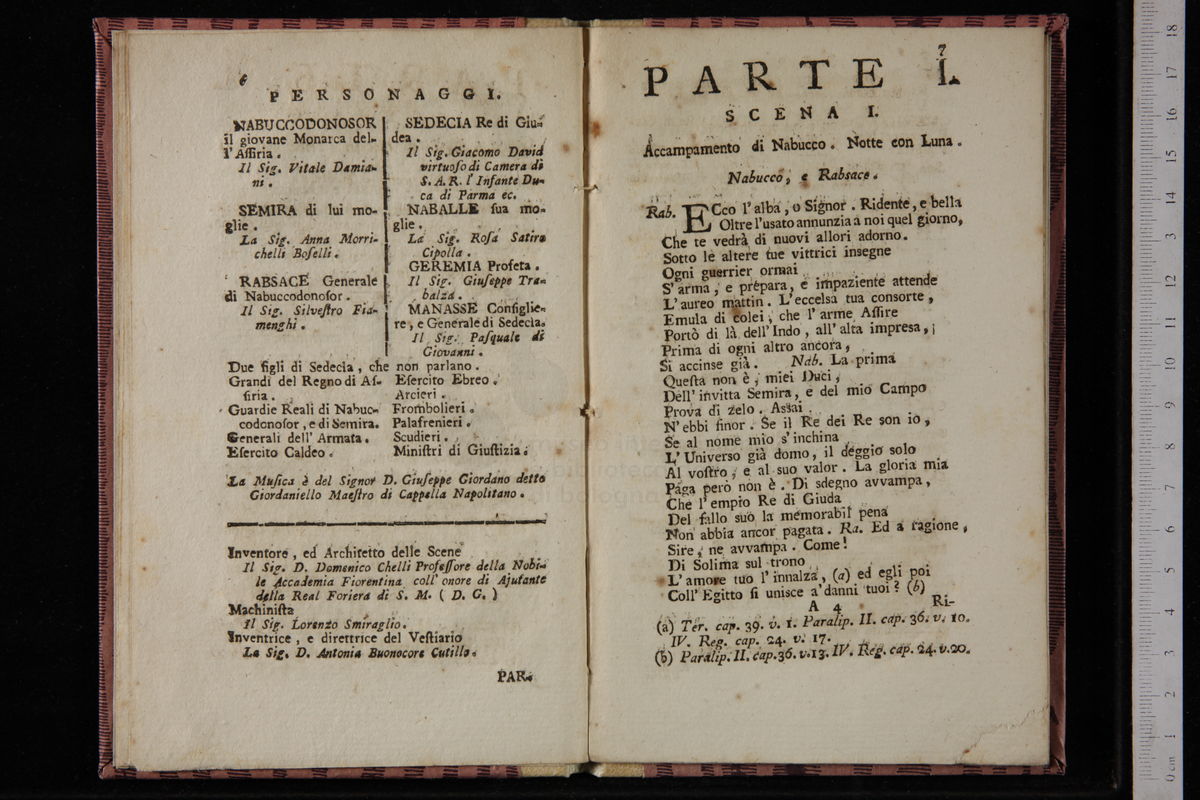 6
PERSONAGGI.
NABUCCODONOSOR
il giovane Monarca del-
l'Aſſiria.
Il Sig. Vitale Damia-
ni.
SEMIRA di lui mo-
glie.
La Sig. Anna Morri-
chelli Boſelli.
RABSACE Generale
di Nabuccodonoſor.
Il Sig. Silveſtro Fia-
menghi.
SEDECIA Re di Giu-
dea.
Il Sig. Giacomo David
virtuoſo di Camera di
S. A. R. l'Infante Du-
ca di Parma ec.
NABALLE ſua mo-
glie.
La Sig. Roſa Satira
Cipolla.
GEREMIA Profeta.
Il Sig. Giuſeppe Tra-
balza.
MANASSE Conſiglie-
re, e Generale di Sedecia.
Il Sig. Paſquale di
Giovanni.
Due figli di Sedecia, che non parlano.
Grandi del Regno di Aſ-
ſiria.
Guardie Reali di Nabuc-
codonoſor, e di Semira.
Generali dell' Armata.
Eſercito Caldeo.
Eſercito Ebreo.
Arcieri.
Frombolieri.
Palafrenieri.
Scudieri.
Miniſtri di Giuſtizia.
La Muſica è del Signor D. Giuſeppe Giordano detto
Giordaniello Maeſtro di Cappella Napolitano.
Inventore, ed Architetto delle Scene
Il Sig. D. Domenico Chelli Profeſſore della Nobi-
le Accademia Fiorentina coll' onore di Ajutante
della Real Foriera di S. M. ( D. G. )
Machiniſta
Il Sig. Lorenzo Smiraglio.
Inventrice, e direttrice del Veſtiario
La Sig. D. Antonia Buonocore Cutillo.
PAR-
7
PARTE I.
SCENA I.
Accampamento di Nabucco. Notte con Luna.
Nabucco, e Rabsace.
Rab. ECco l'alba, o Signor. Ridente, e bella
Oltre l'usato annunzia a noi quel giorno,
Che te vedrà di nuovi allori adorno.
Sotto le altere tue vittrici insegne
Ogni guerrier ormai
S'arma, e prepara, e impaziente attende
L'aureo mattin. L'eccelsa tua consorte,
Emula di colei, che l'arme Aſſire
Portò di là dell'Indo, all'alta impresa,
Prima di ogni altro ancora,
Si accinse già. Nab. La prima
Queſta non è, miei Duci,
Dell' invitta Semira, e del mio Campo
Prova di zelo. Assai
N'ebbi finor. Se il Re dei Re son io,
Se al nome mio s'inchina
L'Universo già domo, il deggio solo
Al voſtro, e al suo valor. La gloria mia
Paga però non è. Di sdegno avvampa,
Che l'empio Re di Giuda
Del fallo suo la memorabil pena
Non abbia ancor pagata. Ra. Ed a ragione,
Sire, ne avvampa. Come!
Di Solima sul trono
L'amore tuo l'innalza, (a) ed egli poi
Coll' Egitto ſi unisce a'danni tuoi? (b)
A 4 Ri-
(a) Ter. cap. 39. v. 1. Paralip. II. cap. 36. v. 10.
IV. Reg. cap. 24. v. 17.
(b) Paralip. II. cap. 36. v. 13. IV. Reg. cap. 24. v. 20.
di bologna
0 cm 1 2 3 4 5 6 7 8 9 10 11 12 13 14 15 16 17 18